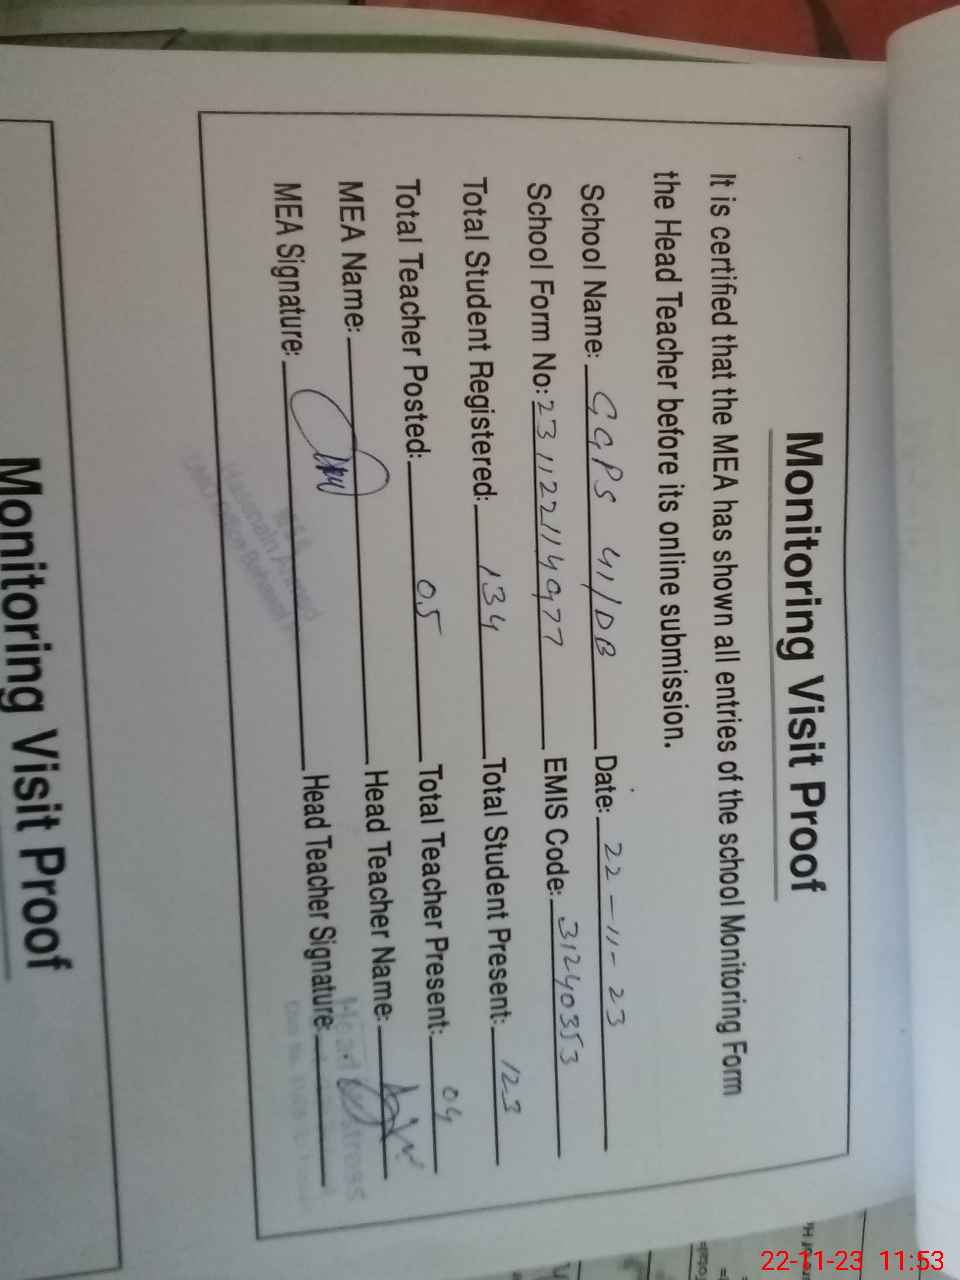 Monitoring Visit Proof
It is certified that the MEA has shown all entries of the school Monitoring Form
the Head Teacher before its online submission.
School Name: GGPS 41/DB Date: 22-11-23
School Form No: 231122114977 EMIS Code: 31240353
Total Student Registered: 134 Total Student Present: 123
Total Teacher Posted: 05 Total Teacher Present: 04
MEA Name: Head Teacher Name:
MEA Signature: Head Teacher Signature:
MEA
Head
Monitoring Visit Proof
22-11-23 11:53